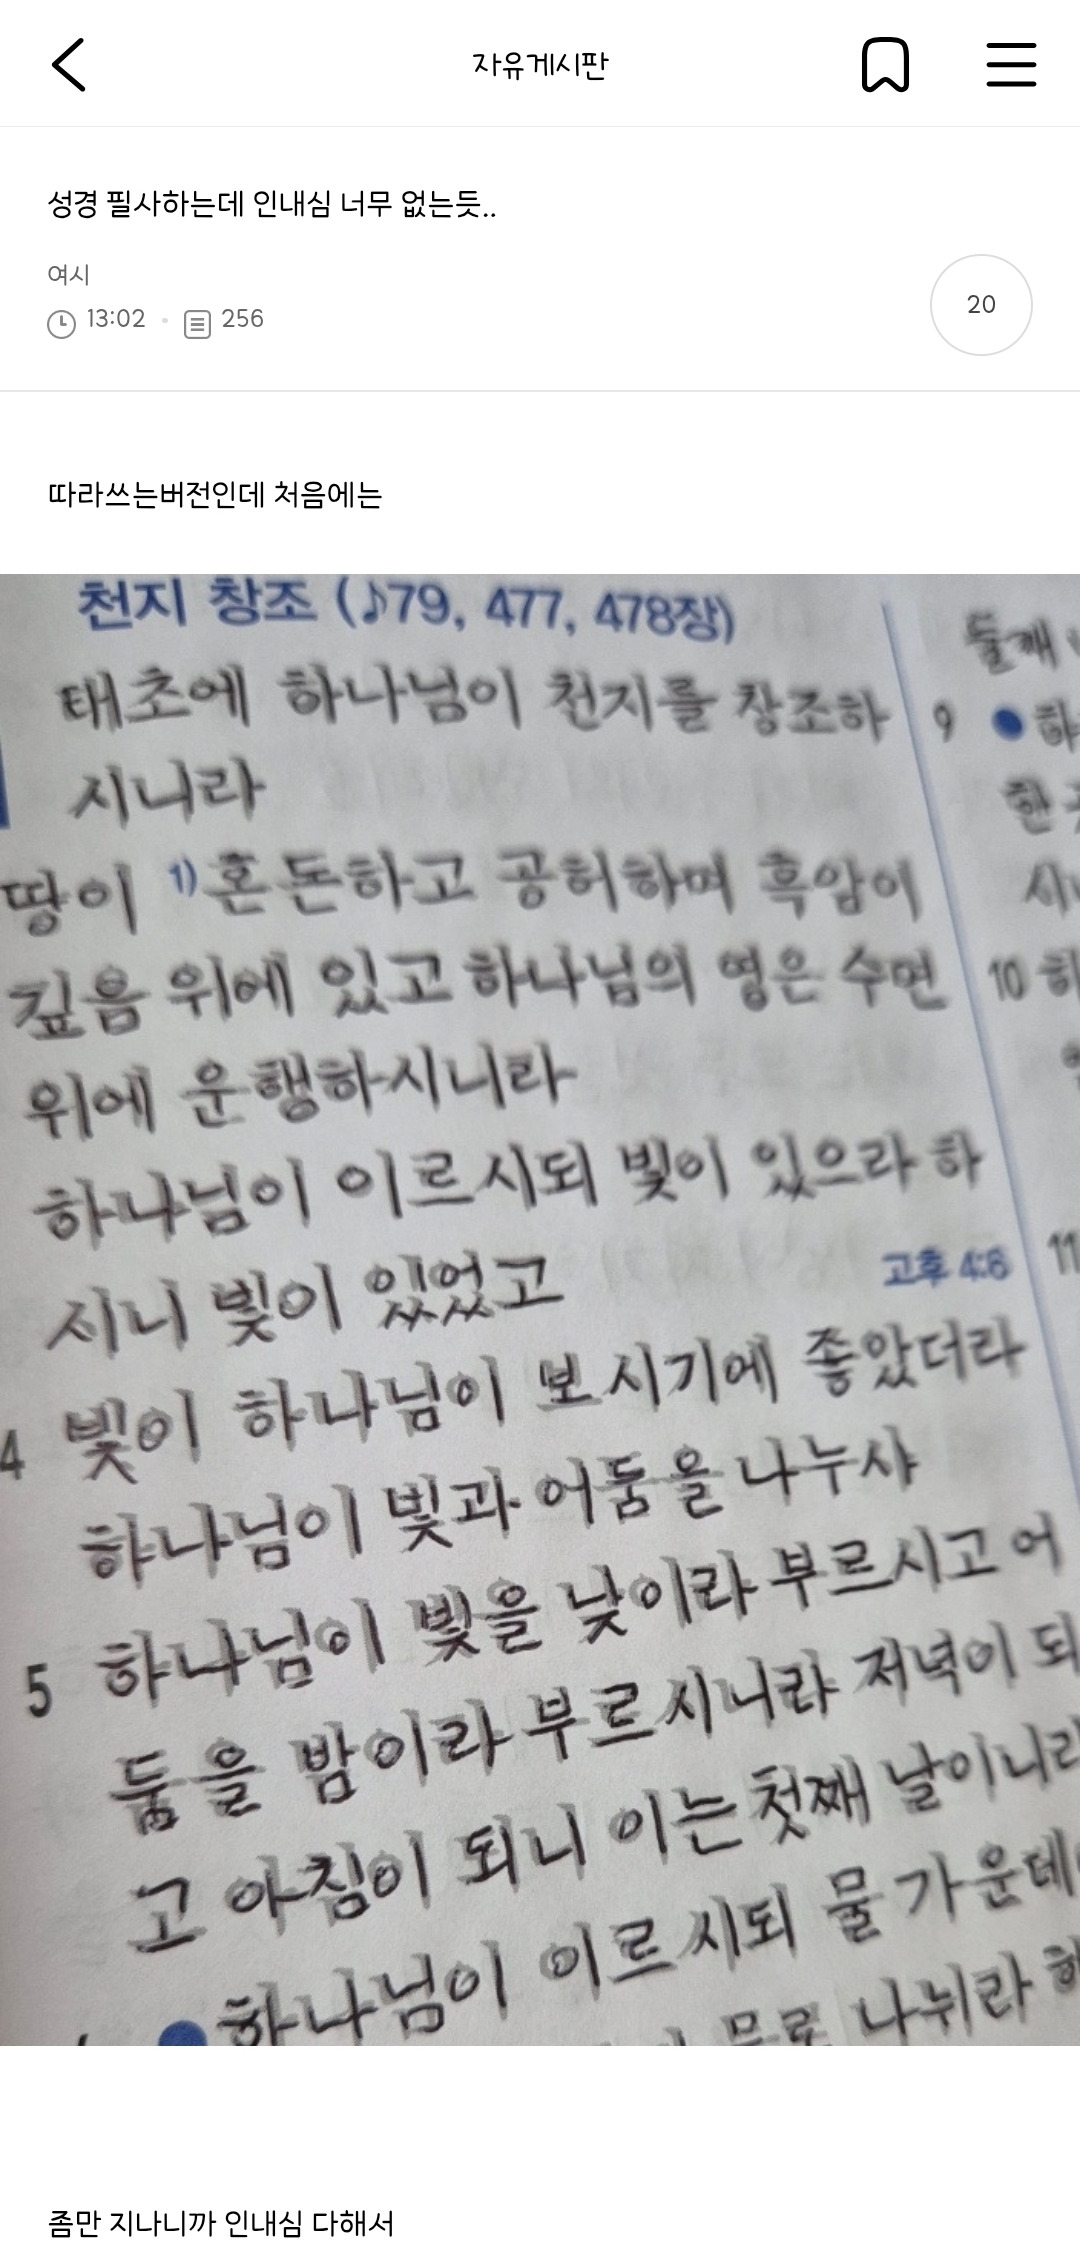 자유게시판
성경 필사하는데 인내심 너무 없는듯..
여시
13:02 · 256
20
따라쓰는버전인데 처음에는
천지 창조 (♪79, 477, 478장)
태초에 하나님이 천지를 창조하
시니라
땅이 1)혼돈하고 공허하며 흑암이
깊음 위에 있고 하나님의 영은 수면
위에 운행하시니라
하나님이 이르시되 빛이 있으라 하
시니 빛이 있었고
고후 4:6
4 빛이 하나님이 보시기에 좋았더라
하나님이 빛과 어둠을 나누사
5 하나님이 빛을 낮이라 부르시고 어
둠을 밤이라 부르시니라 저녁이 되
고 아침이 되니 이는 첫째 날이니라
하나님이 이르시되 물 가운데
나뉘라 하
둘째
9 하
한
10 하
11
좀만 지나니까 인내심 다해서